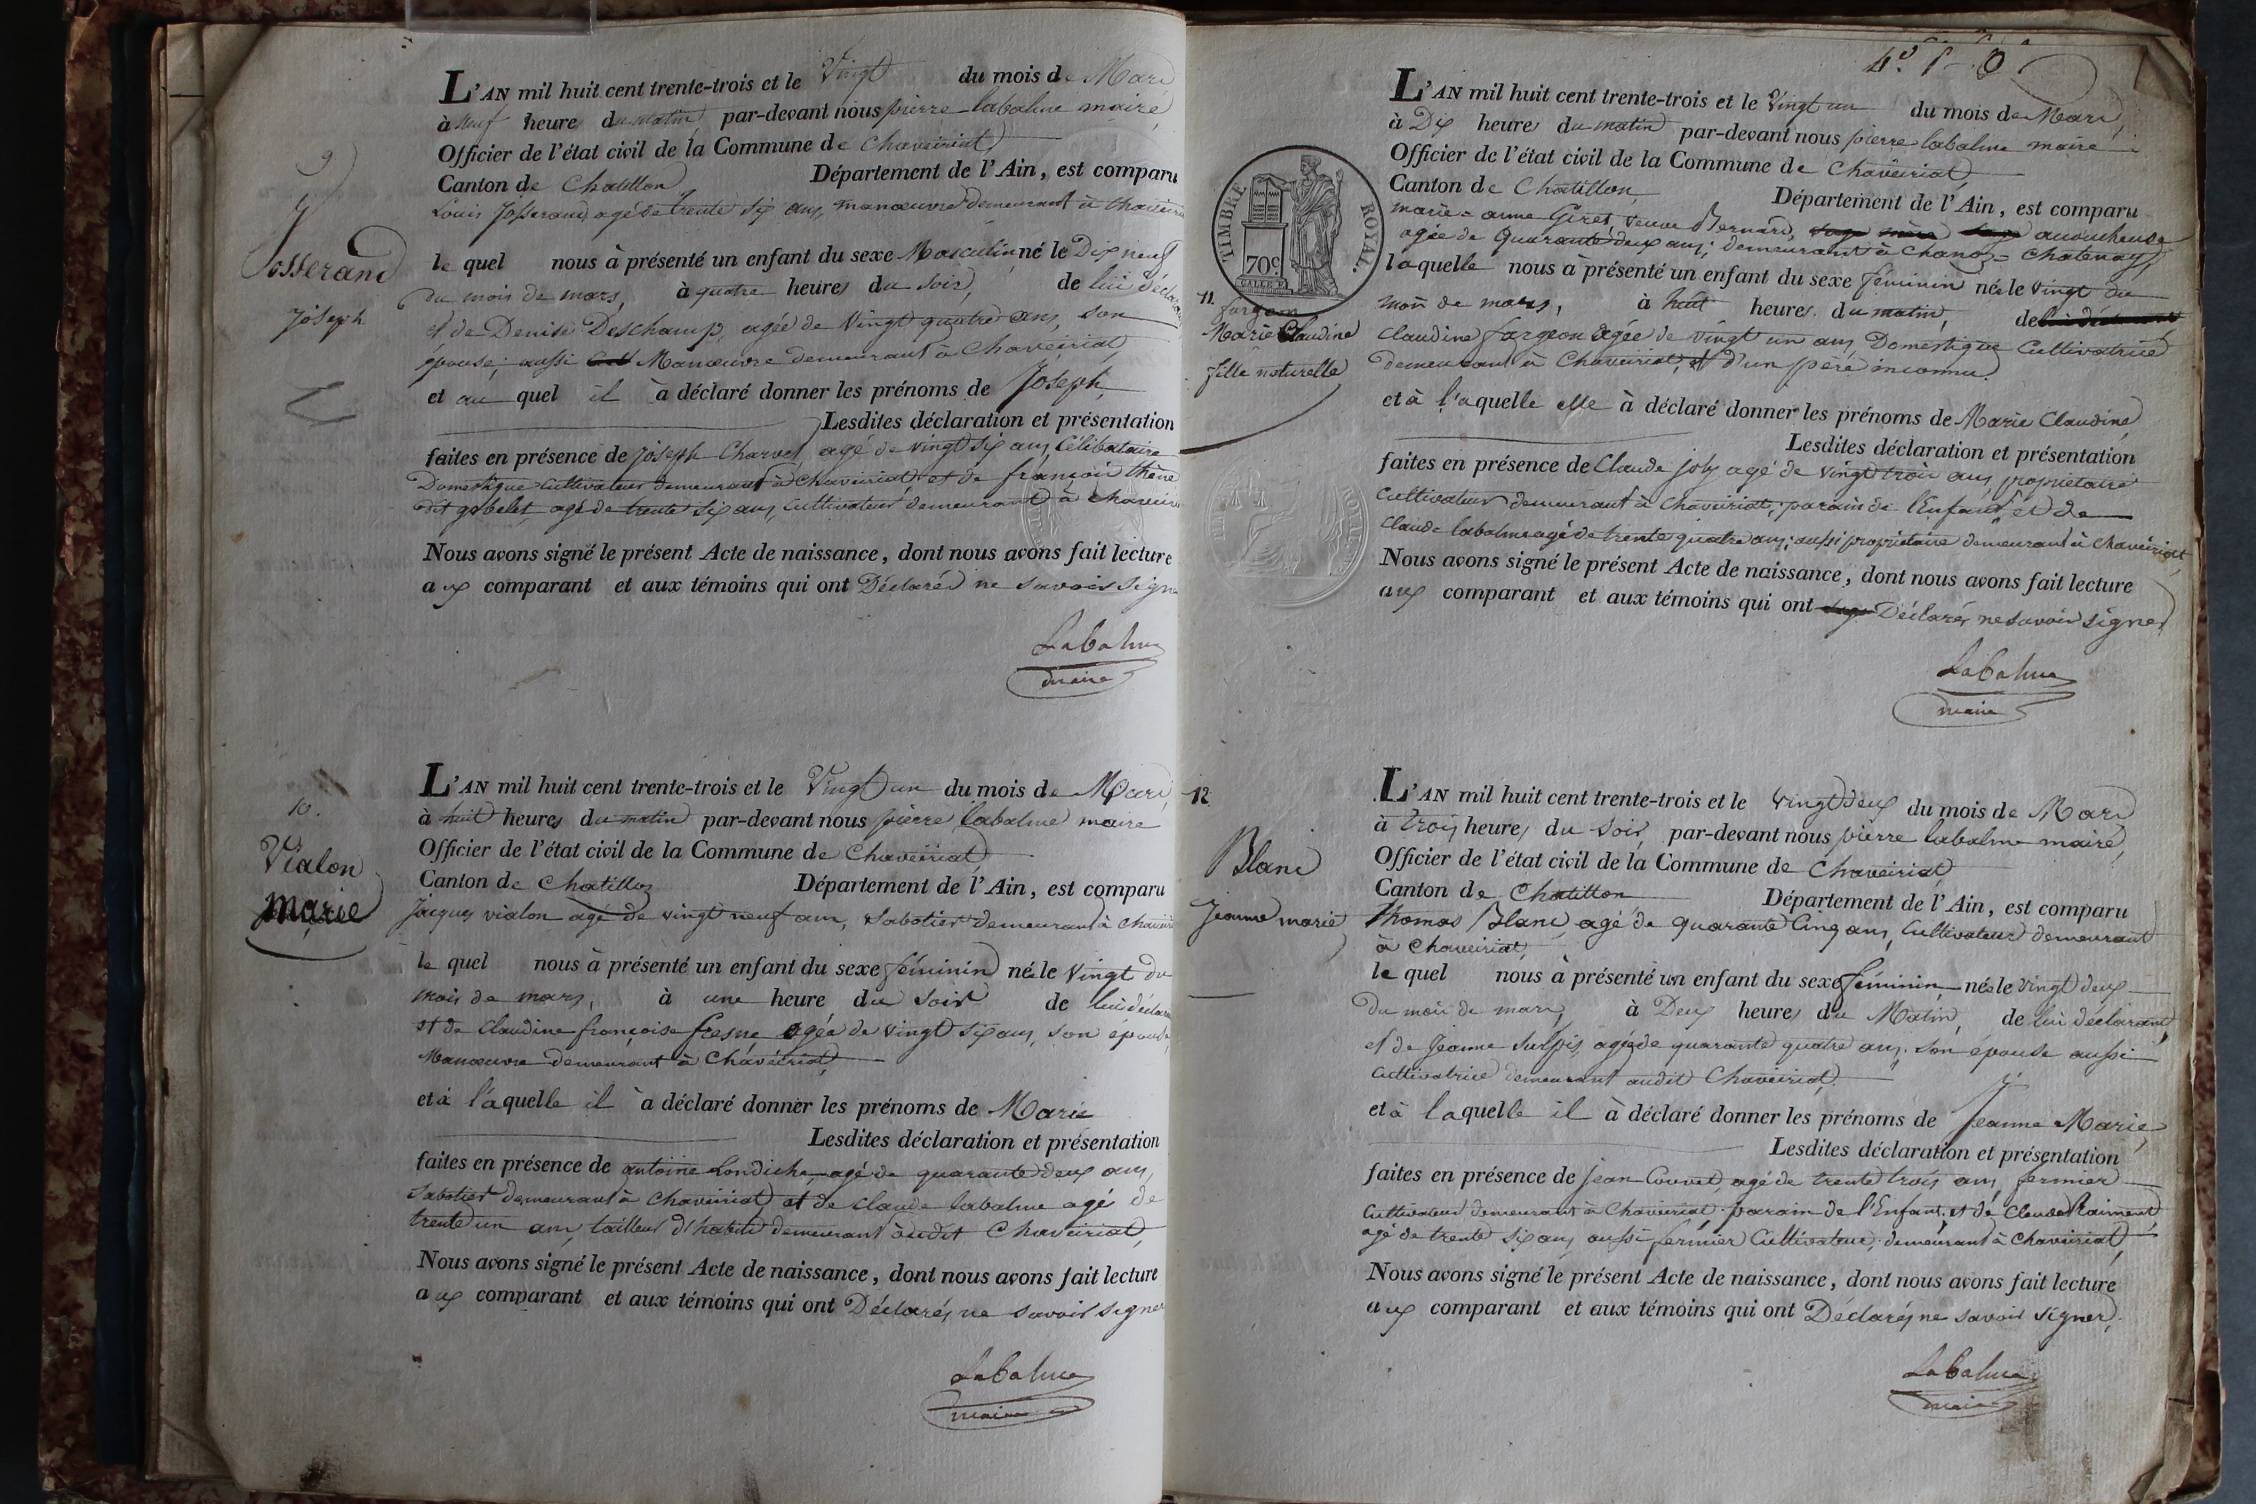 9
Josserand
Joseph
L'AN mil huit cent trente-trois et le Vingt du mois de Mars
à neuf heures du matin par-devant nous pierre labalme maire
Officier de l'état civil de la Commune de Chaveiriat
Canton de Chatillon Département de l'Ain, est comparu
Louis Josserand agé de trente six ans, manœuvre demeurant à Chaveiria
le quel nous à présenté un enfant du sexe Masculin né le Dix neuf
du mois de mars, à quatre heures du soir, de lui déclar
et de Denise Deschamp, agée de Vingt quatre ans, son
épouse, aussi Manœuvre demeurant à Chaveiriat
et au quel il à déclaré donner les prénoms de Joseph
Lesdites déclaration et présentation
faites en présence de joseph Charvet agé de vingt six ans, Célibataire
Domestique Cultivateur demeurant à Chaveiriat et de françois thène
dit gobelet, agé de trente six ans, Cultivateur demeurant à chaveir
Nous avons signé le présent Acte de naissance, dont nous avons fait lecture
aux comparant et aux témoins qui ont Déclarés ne savoir signe
Labalme
maire
10.
Vialon
Marie
L'AN mil huit cent trente-trois et le Vingt un du mois de Mars
à huit heures du matin par-devant nous pierre labalme maire
Officier de l'état civil de la Commune de Chaveiriat
Canton de Chatillon Département de l'Ain, est comparu
Jacques vialon agé de vingt neuf ans, Sabotier demeurant à Chaveir
le quel nous à présenté un enfant du sexe féminin née le vingt du
mois de mars, à une heure du soir de lui déclara
et de Claudine françoise fresne agée de vingt six ans, son épouse,
Manœuvre demeurant à Chaveiriat,
et à l'aquelle il à déclaré donner les prénoms de Marie
Lesdites déclaration et présentation
faites en présence de antoine Londiche, agé de quarante deux ans,
Sabotier demeurant à Chaveiriat et de Claude labalme agé de
trente un ans, tailleur d'habits demeurant audit Chaveiriat,
Nous avons signé le présent Acte de naissance, dont nous avons fait lecture
aux comparant et aux témoins qui ont Déclarés ne savoir signer
Labalme
maire
TIMBRE ROYAL.
70c.
11.
fargeon
Marie Claudine
fille naturelle
L'AN mil huit cent trente-trois et le Vingt un du mois de Mars,
à Dix heures du matin par-devant nous pierre labalme maire
Officier de l'état civil de la Commune de Chaveiriat
Canton de Chatillon, Département de l'Ain, est comparu
marie-anne Giret, veuve Bernard, accoucheuse
agée de Quarante deux ans; demeurant à Chanoz-Chatenay,
laquelle nous à présenté un enfant du sexe féminin née le vingt du
mois de mars, à huit heures du matin, de
Claudine fargeon agée de vingt un ans, Domestique Cultivatrice
demeurant à Chaveiriat, et d'un père inconnu.
et à l'aquelle elle à déclaré donner les prénoms de Marie Claudine
Lesdites déclaration et présentation
faites en présence de Claude joly agé de vingt trois ans, propriétaire
Cultivateur demeurant à Chaveiriat, parain de l'Enfant et de
Claude labalme agé de trente quatre ans; aussi propriétaire demeurant à Chaveiriat
Nous avons signé le présent Acte de naissance, dont nous avons fait lecture
aux comparant et aux témoins qui ont Déclarés ne savoir signer
Labalme
maire
12
Blanc
Jeanne marie
L'AN mil huit cent trente-trois et le Vingt deux du mois de Mars
à trois heures du soir, par-devant nous pierre labalme maire,
Officier de l'état civil de la Commune de Chaveiriat
Canton de Chatillon Département de l'Ain, est comparu
Thomas Blanc, agé de quarante Cinq ans, Cultivateur demeurant
à Chaveiriat,
le quel nous à présenté un enfant du sexe féminin, née le vingt deux
du mois de mars, à Deux heures du Matin, de lui déclarant,
et de Jeanne Sulpis, agée de quarante quatre ans, son épouse aussi
Cultivatrice demeurant audit Chaveiriat.
et à laquelle il à déclaré donner les prénoms de Jeanne Marie,
Lesdites déclaration et présentation
faites en présence de jean Couvet, agé de trente trois ans, fermier
Cultivateur demeurant à Chaveiriat, parain de l'Enfant, et de Claude Raiment
agé de trente six ans, aussi fermier Cultivateur, demeurant à Chaveiriat,
Nous avons signé le présent Acte de naissance, dont nous avons fait lecture
aux comparant et aux témoins qui ont Déclarés ne savoir signer,
Labalme
maire